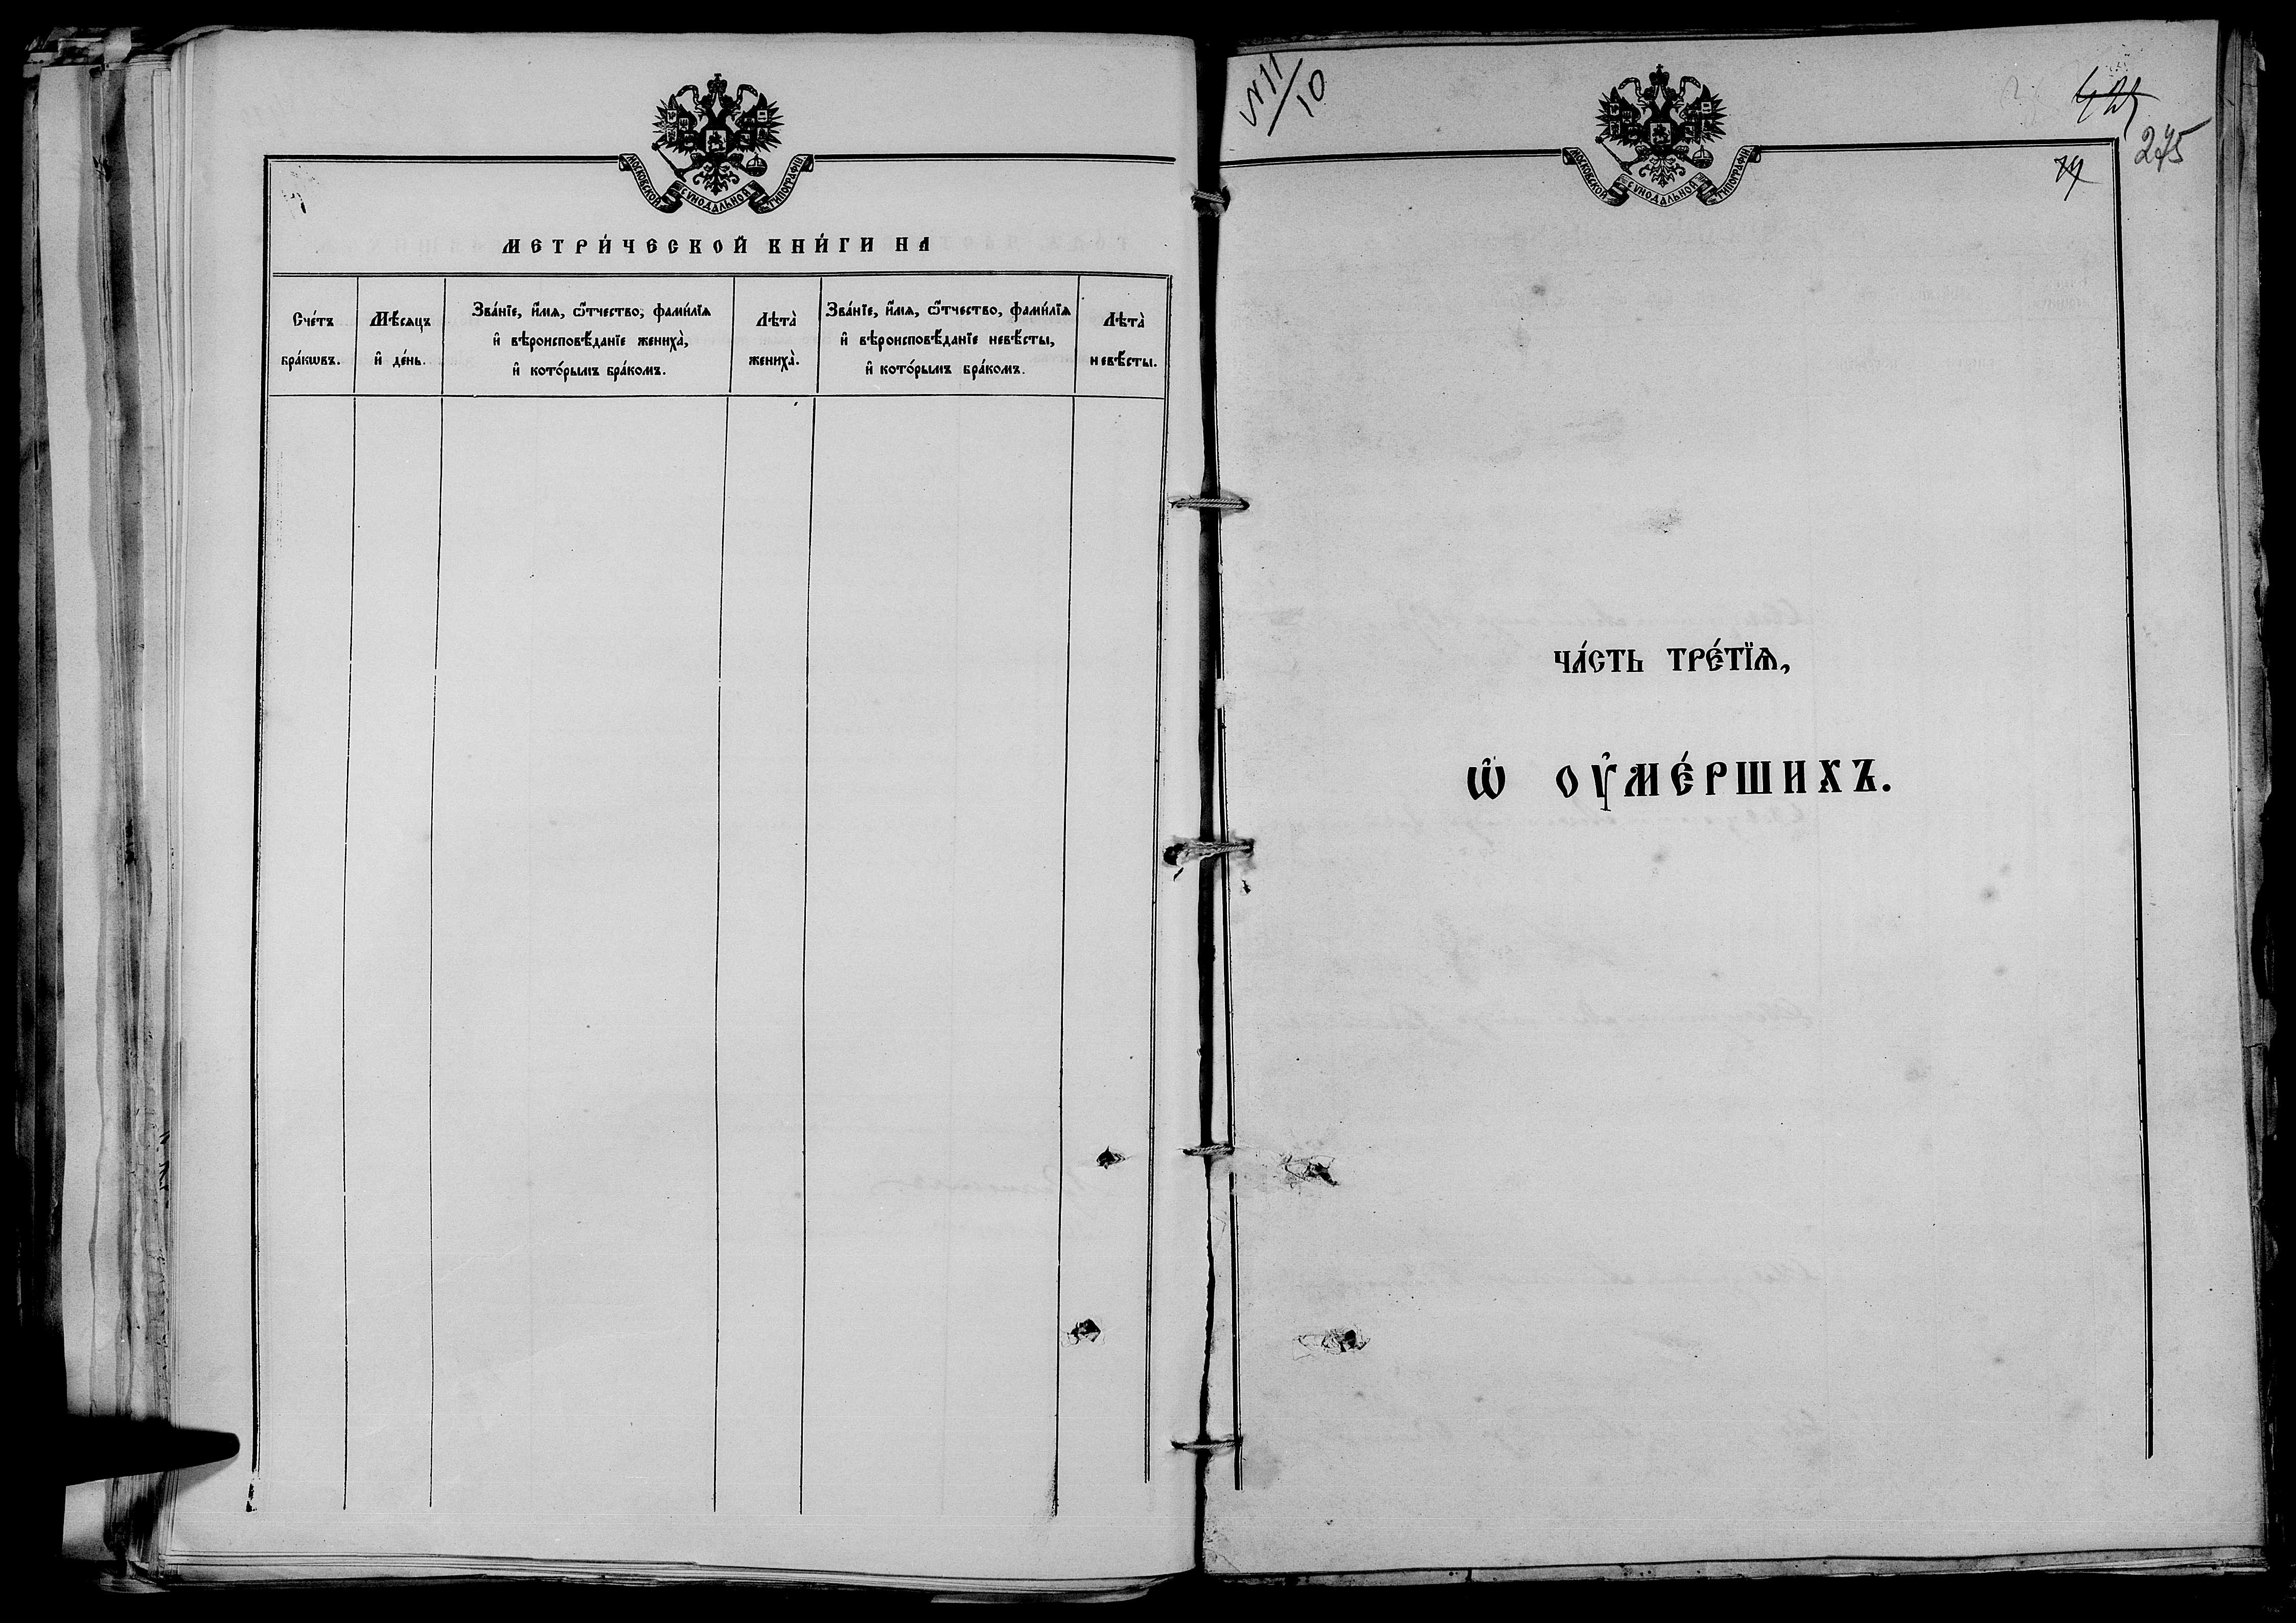 МОСКОВСКОЙ СѴНОДАЛЬНОЙ ТИПОГРАФІИ
МЕТРИ́ЧЕСКОЙ КНИ́ГИ НА
Сче́тъ бра́кѡвъ.
Мѣ́сяцъ и҆ де́нь.
Зва́нїе, и҆́мѧ, ѻ҆́тчество, фами́лїѧ
и҆ вѣроисповѣ́данїе жениха̀,
и҆ кото́рымъ бра́комъ.
Лѣта̀ жениха̀.
Зва́нїе, и҆́мѧ, ѻ҆́тчество, фами́лїѧ
и҆ вѣроисповѣ́данїе невѣ́сты,
и҆ кото́рымъ бра́комъ.
Лѣта̀ невѣ́сты.
N 11/10
275
МОСКОВСКОЙ СѴНОДАЛЬНОЙ ТИПОГРАФІИ
ЧА́СТЬ ТРЕ́ТЇѦ,
Ѡ҆ ОУ҆МЕ́РШИХЪ.